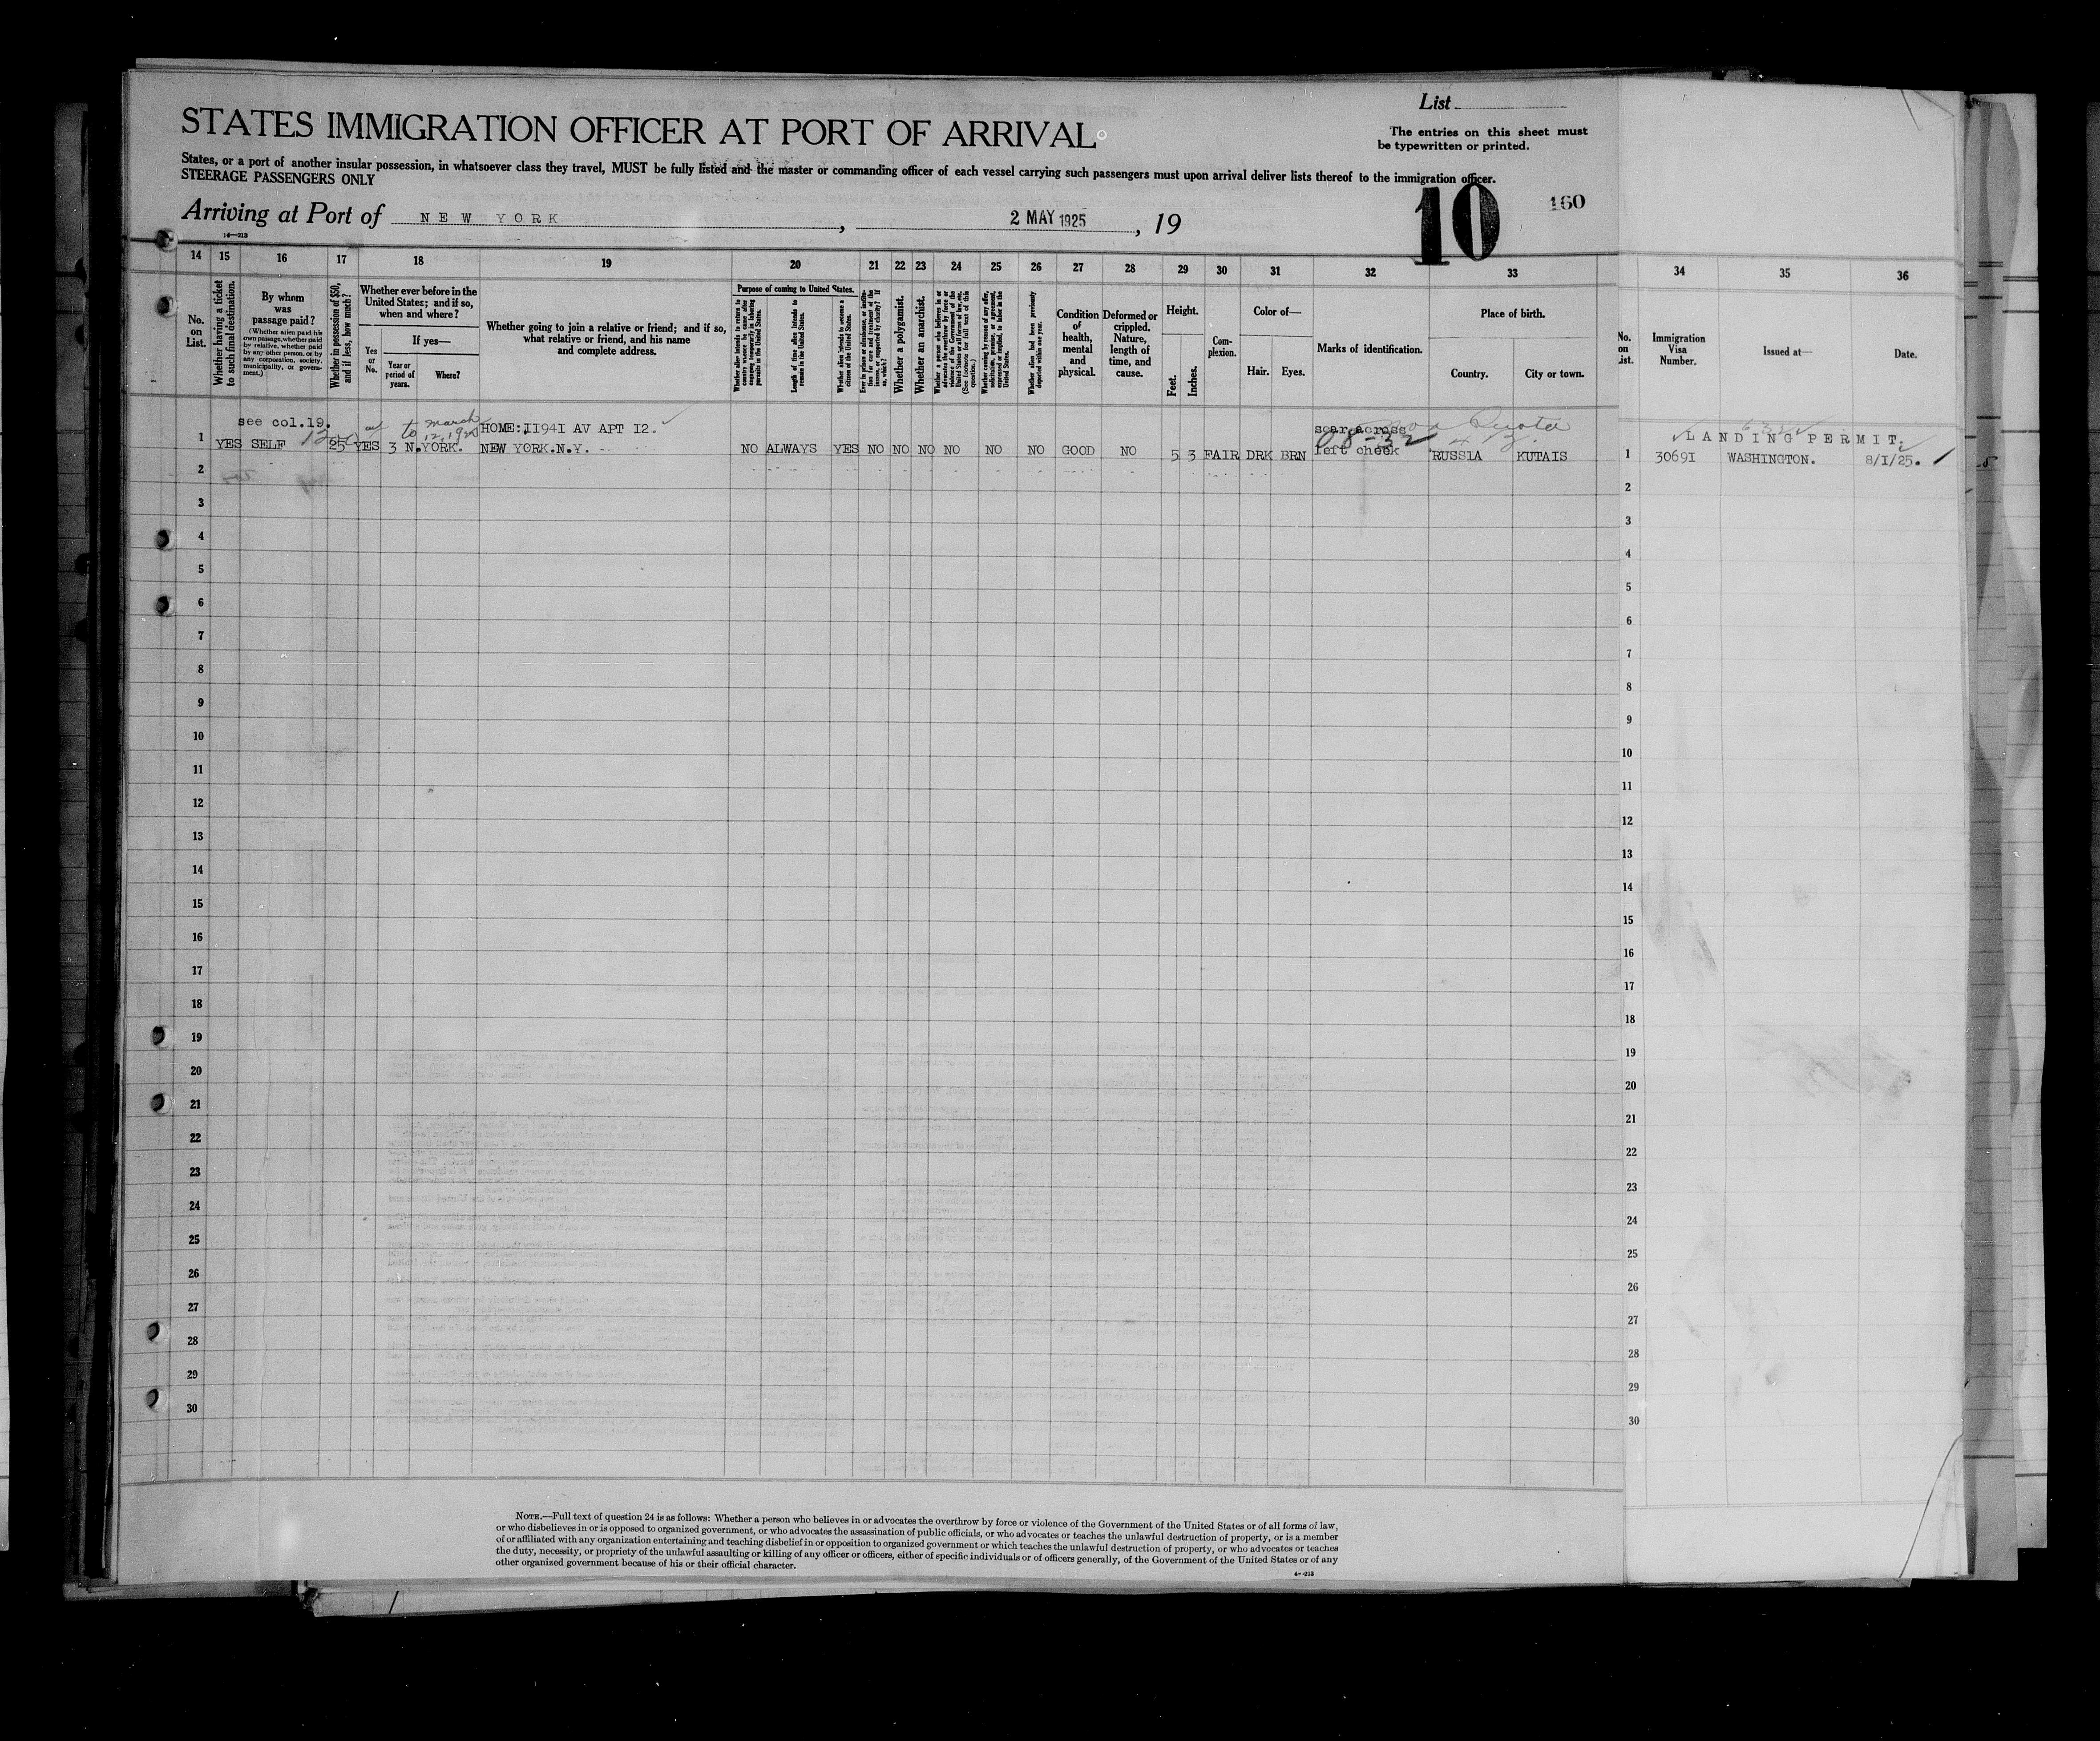 List
STATES IMMIGRATION OFFICER AT PORT OF ARRIVAL
The entries on this sheet must
be typewritten or printed.
States, or a port of another insular possession, in whatsoever class they travel, MUST be fully listed and the master or commanding officer of each vessel carrying such passengers must upon arrival deliver lists thereof to the immigration officer.
STEERAGE PASSENGERS ONLY
10
160
Arriving at Port of NEW YORK, 2 MAY 1925, 19
14 15 16 17 18 19 20 21 22 23 24 25 26 27 28 29 30 31 32 33 34 35 36
No. on List.
Whether having a ticket to such final destination.
By whom was passage paid?
(Whether alien paid his own passage, whether paid by relative, whether paid by any other person, or by any corporation, society, municipality, or government.)
Whether in possession of $50, and if less, how much?
Whether ever before in the United States; and if so, when and where?
Yes or No.
If yes—
Year or period of years.
Where?
Whether going to join a relative or friend; and if so, what relative or friend, and his name and complete address.
Purpose of coming to United States.
Whether alien intends to return to country whence he came after engaging temporarily in laboring pursuits in the United States.
Length of time alien intends to remain in the United States.
Whether alien intends to become a citizen of the United States.
Ever in prison or almshouse, or institution for care and treatment of the insane, or supported by charity? If so, which?
Whether a polygamist.
Whether an anarchist.
Condition of health, mental and physical.
Deformed or crippled. Nature, length of time, and cause.
Height.
Feet.
Inches.
Complexion.
Color of—
Hair.
Eyes.
Marks of identification.
Place of birth.
Country.
City or town.
No. on List.
Immigration Visa Number.
Issued at—
Date.
see col.19. to march HOME:II94I AV APT I2. scar across Quota LANDING PERMIT.
1 YES SELF 25 YES 3 N.YORK. NEW YORK.N.Y. NO ALWAYS YES NO NO NO NO NO NO GOOD NO 5 3 FAIR DRK BRN left cheek RUSSIA KUTAIS 1 3069I WASHINGTON. 8/I/25.
2 2
3 3
4 4
5 5
6 6
7 7
8 8
9 9
10 10
11 11
12 12
13 13
14 14
15 15
16 16
17 17
18 18
19 19
20 20
21 21
22 22
23 23
24 24
25 25
26 26
27 27
28 28
29 29
30 30
NOTE.—Full text of question 24 is as follows: Whether a person who believes in or advocates the overthrow by force or violence of the Government of the United States or of all forms of law,
or who disbelieves in or is opposed to organized government, or who advocates the assassination of public officials, or who advocates or teaches the unlawful destruction of property, or is a member
of or affiliated with any organization entertaining and teaching disbelief in or opposition to organized government or which teaches the unlawful destruction of property, or who advocates or teaches
the duty, necessity, or propriety of the unlawful assaulting or killing of any officer or officers, either of specific individuals or of officers generally, of the Government of the United States or of any
other organized government because of his or their official character.